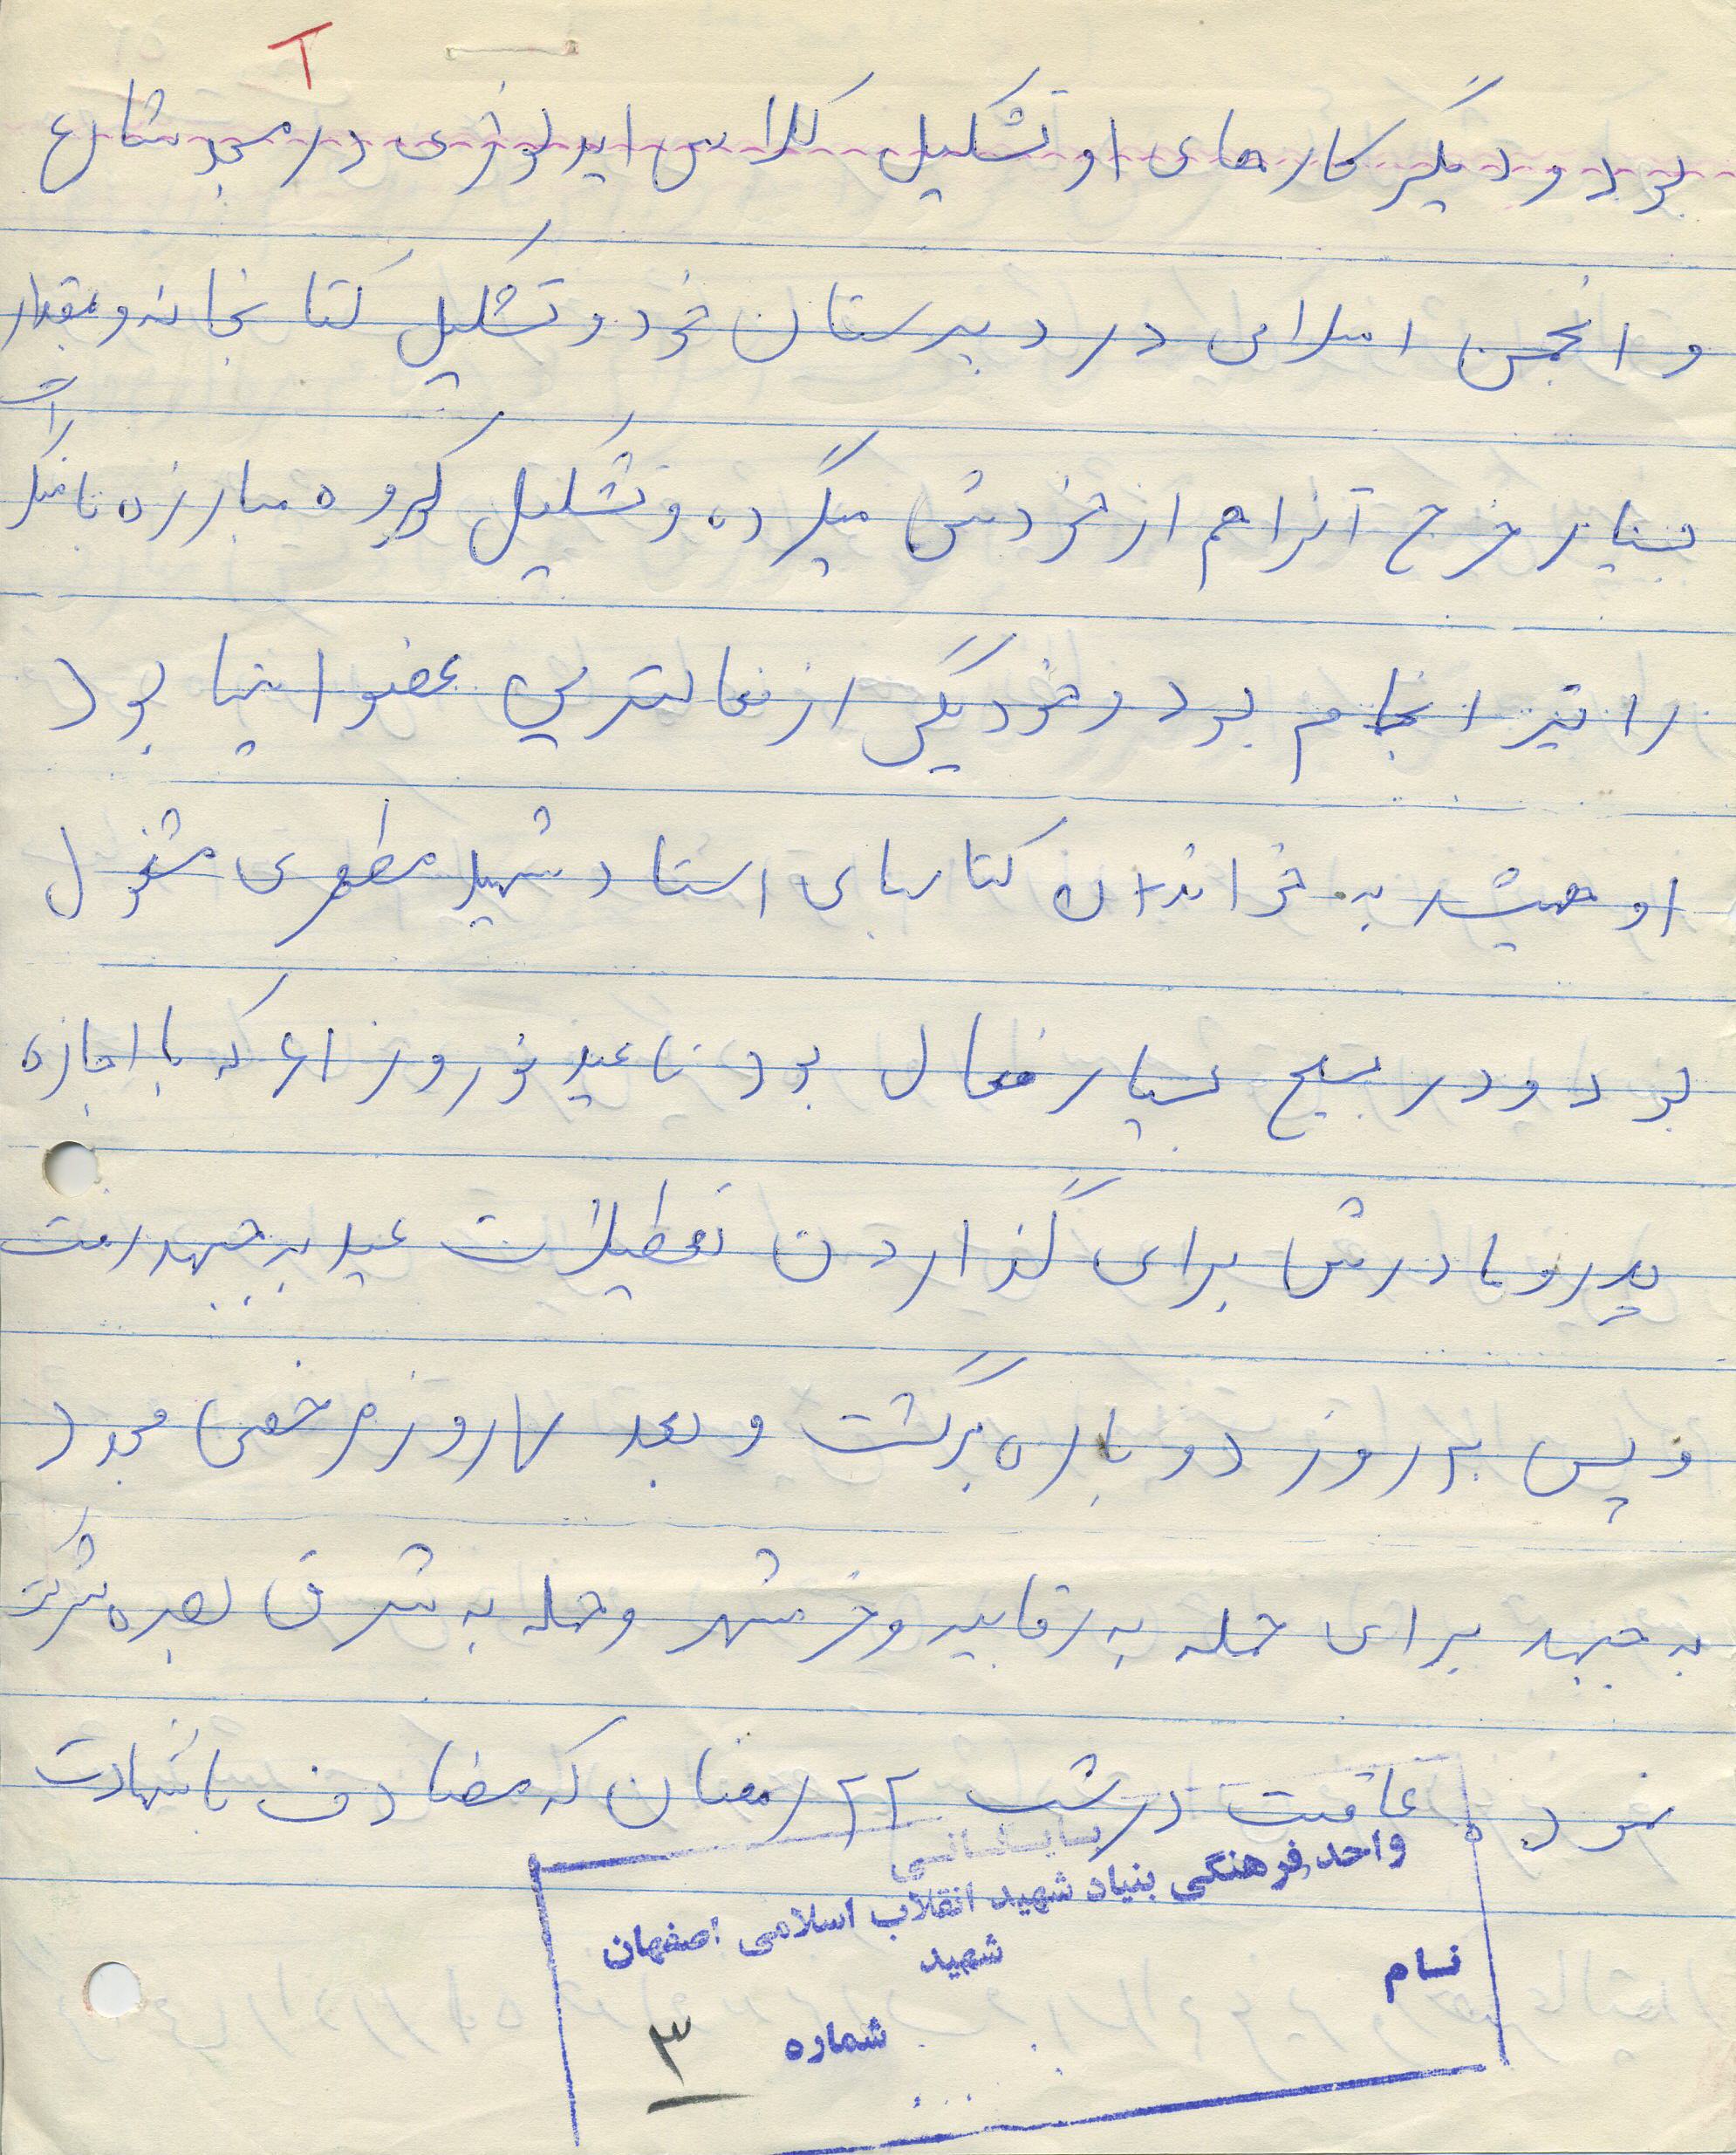 بود و دیگر کارهای او تشکیل کلاس ایدلوژی در مسجد شارع
و انجمن اسلامی در دبیرستان خود و تشکیل کتابخانه و مقدار
بسیار خرج آنرا هم از خودش میگرده و تشکیل گروه مبارزه با منکرات
را نیز انجام بود و خود یکی از فعالترین عضو اینها بود
او همیشه به خواندن کتابهای استاد شهید مطهری مشغول
بود و در بسیج بسیار فعال بود تا عید نوروز ۶۱ که با اجازه
پدر و مادرش برای گذاردن تعطیلات عید به جبهه رفت
و پس ۲۰ روز دوباره برگشت و بعد روز مرخصی مجدد
به جبهه برای حمله به رقابیه و خرمشهر و حمله به شرق بصره شرکت
نمود عاقبت در شب ۲۲ رمضان که مصادف با شهادت
بایگانی
واحد فرهنگی بنیاد شهید انقلاب اسلامی اصفهان
نام شهید
شماره ۳